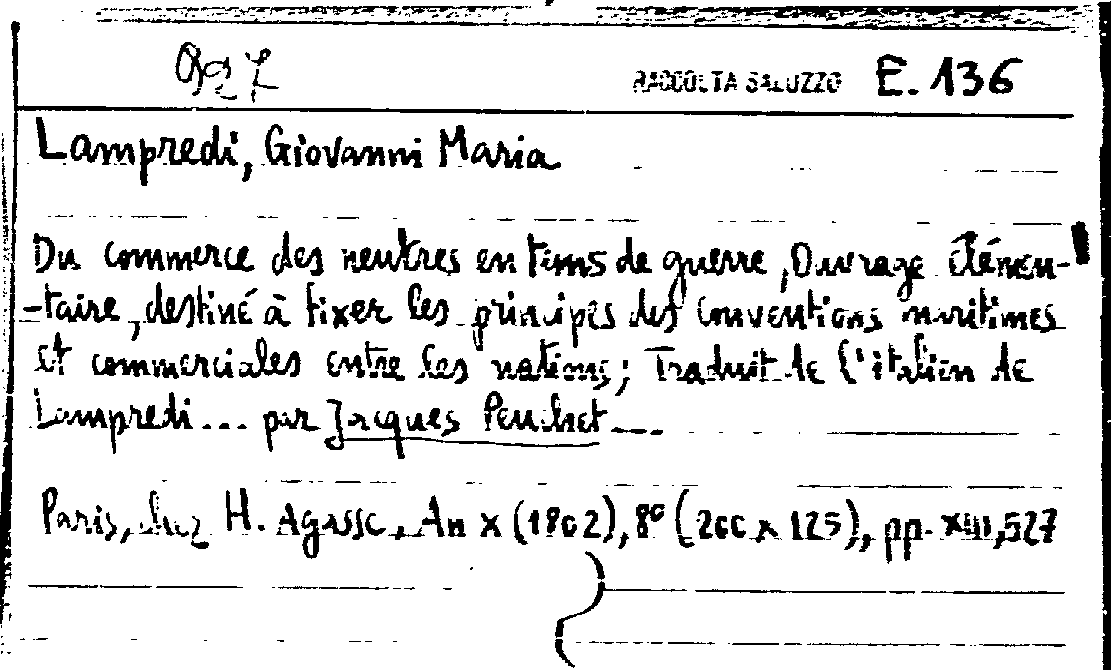 RACCOLTA SALUZZO E. 136
Lampredi, Giovanni Maria
Du commerce des neutres en tems de guerre, Ouvrage élémen-
-taire, destiné à fixer les principes des conventions maritimes
et commerciales entre les nations; Traduit de l'italien de
Lampredi... par Jacques Peuchet....
Paris, chez H. Agasse, An X (1802), 8º (200 x 125), pp. XIII, 527